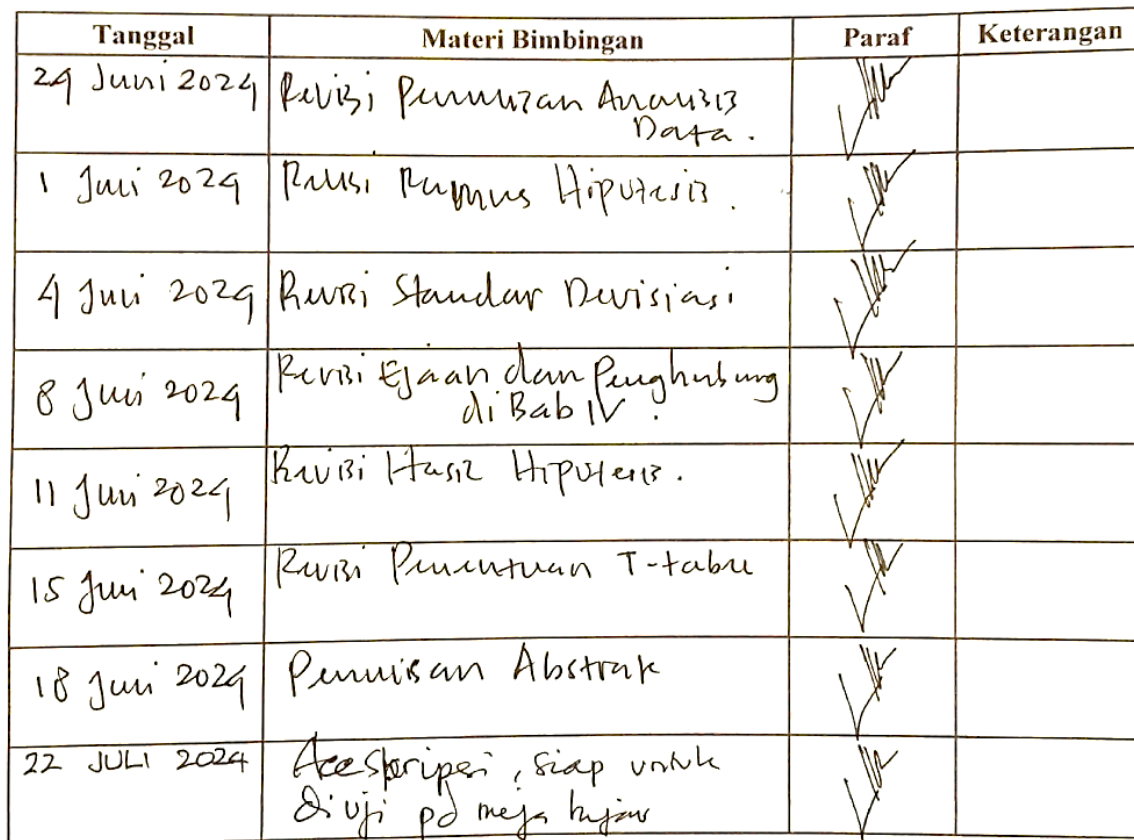 Tanggal Materi Bimbingan Paraf Keterangan
24 Juni 2024 Revisi Penulisan Analisis
Data.
1 Juli 2024 Revisi Rumus Hipotesis.
4 Juli 2024 Revisi Standar Devisiasi
8 Juli 2024 Revisi Ejaan dan Penghubung
di Bab IV.
11 Juli 2024 Revisi Hasil Hipotesis.
15 Juli 2024 Revisi Penentuan T-tabel
18 Juli 2024 Penulisan Abstrak
22 JULI 2024 Acc Skripsi, siap untuk
diuji pd meja hijau